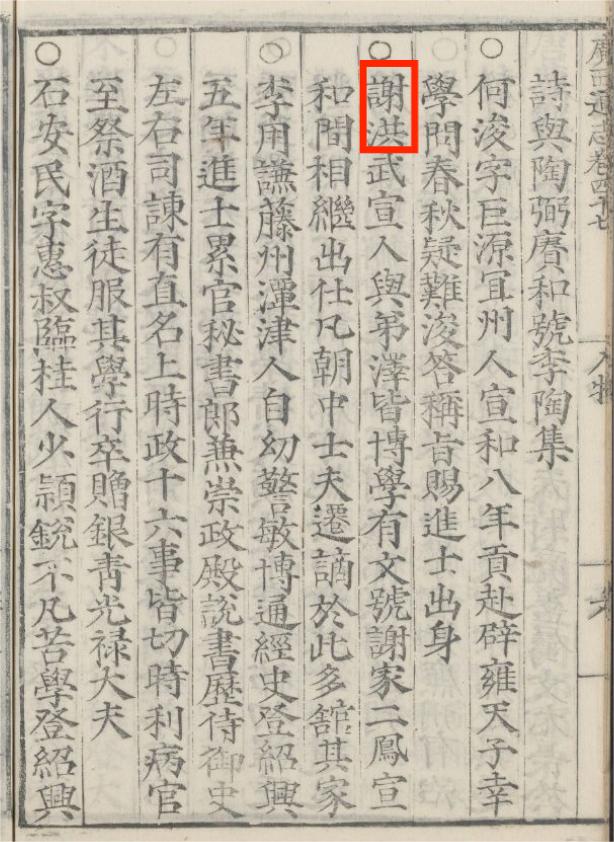 廣西通志卷四十七
人物
詩與陶弼賡和號李陶集
○何浚字巨源宜州人宣和八年貢赴辟雍天子幸
學問春秋疑難浚答稱旨賜進士出身
○謝洪武宣人與弟澤皆博學有文號謝家二鳳宣
和間相繼出仕凡朝中士夫遷謫於此多舘其家
○李用謙藤州潭津人自幼警敏博通經史登紹興
五年進士累官秘書郎兼崇政殿說書歷侍御史
左右司諫有直名上時政十六事皆切時利病官
至祭酒生徒服其學行卒贈銀青光禄大夫
○石安民字惠叔臨桂人少頴銳不凡苦學登紹興